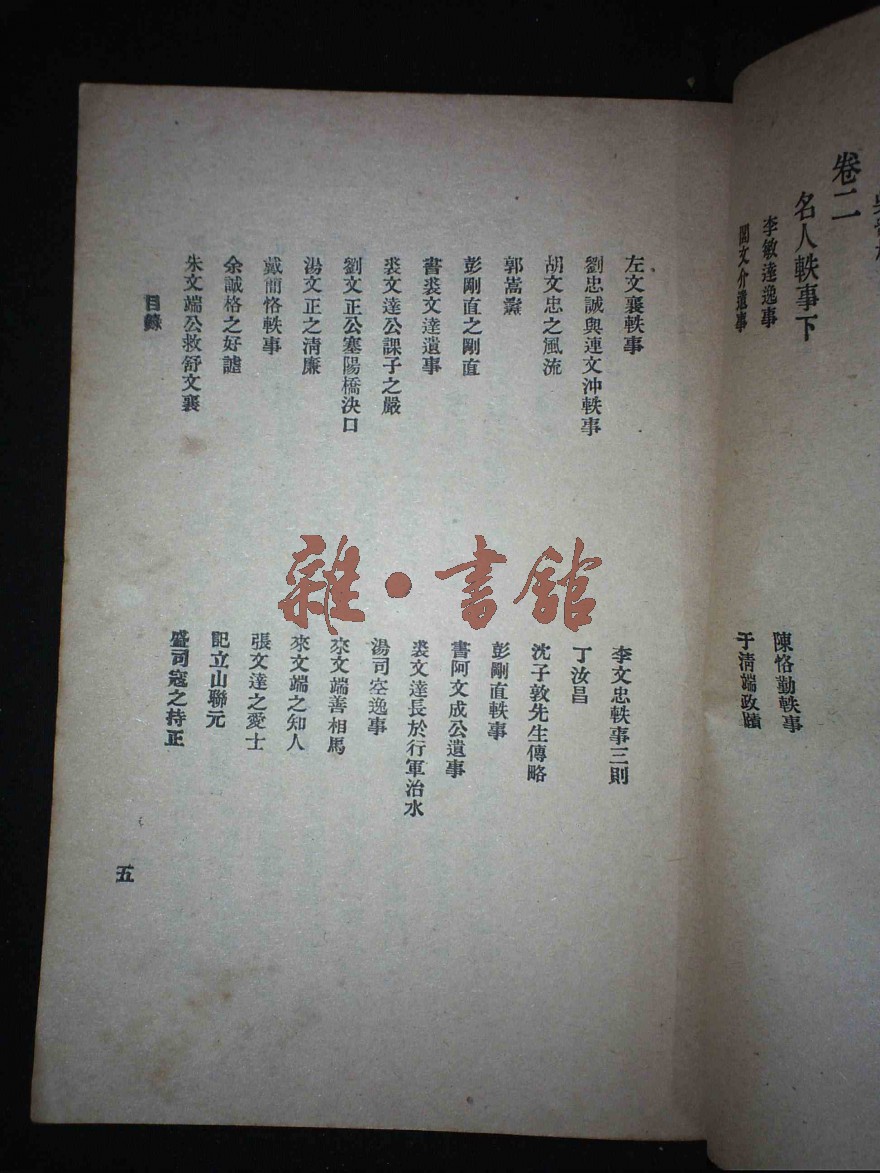 卷二
名人軼事下
李敏達逸事
陳恪勤軼事
閻文介遺事
于清端政蹟
左文襄軼事
李文忠軼事三則
劉忠誠與連文沖軼事
丁汝昌
胡文忠之風流
沈子敦先生傳略
郭嵩燾
彭剛直軼事
彭剛直之剛直
書阿文成公遺事
書裘文達遺事
裘文達長於行軍治水
裘文達公課子之嚴
湯司空逸事
劉文正公塞陽橋決口
來文端善相馬
湯文正之淸廉
來文端之知人
戴簡恪軼事
張文達之愛士
余誠格之好謔
記立山聯元
朱文端公救舒文襄
盛司寇之持正
目錄
五
雜·書館